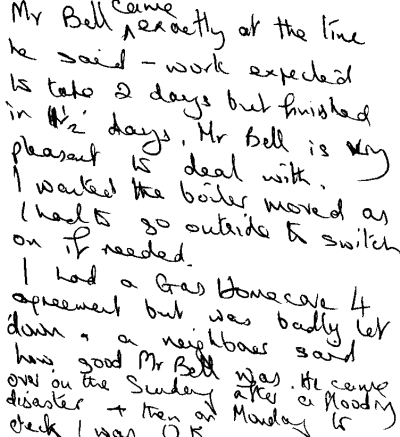 Mr Bell came exactly at the time
he said - work expected
to take 2 days but finished
in 1 1/2 days. Mr Bell is very
pleasant to deal with.
I wanted the boiler moved as
I had to go outside to switch
on if needed.
I had a Gas Homecare 4
agreement but was badly let
down & a neighbour said
how good Mr Bell was. He came
over on the Sunday after a flooding
disaster + then on Monday to
check I was OK